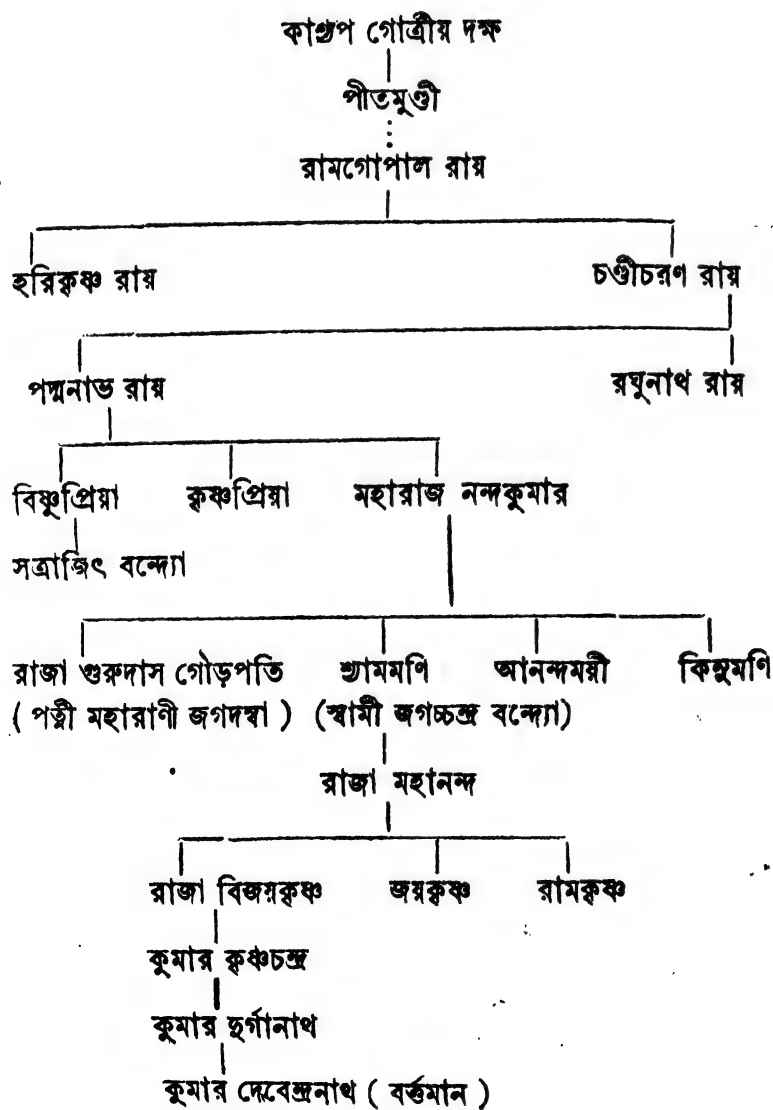 কাশ্যপ গোত্রীয় দক্ষ
পীতমুণ্ডী
রামগোপাল রায়
হরিকৃষ্ণ রায় চণ্ডীচরণ রায়
পদ্মনাভ রায় রঘুনাথ রায়
বিষ্ণুপ্রিয়া কৃষ্ণপ্রিয়া মহারাজ নন্দকুমার
সত্রাজিৎ বন্দ্যো
রাজা গুরুদাস গৌড়পতি শ্যামমণি আনন্দময়ী কিনুমণি
( পত্নী মহারাণী জগদম্বা ) (স্বামী জগচ্চন্দ্র বন্দ্যো)
রাজা মহানন্দ
রাজা বিজয়কৃষ্ণ জয়কৃষ্ণ রামকৃষ্ণ
কুমার কৃষ্ণচন্দ্র
কুমার দুর্গানাথ
কুমার দেবেন্দ্রনাথ ( বর্ত্তমান )